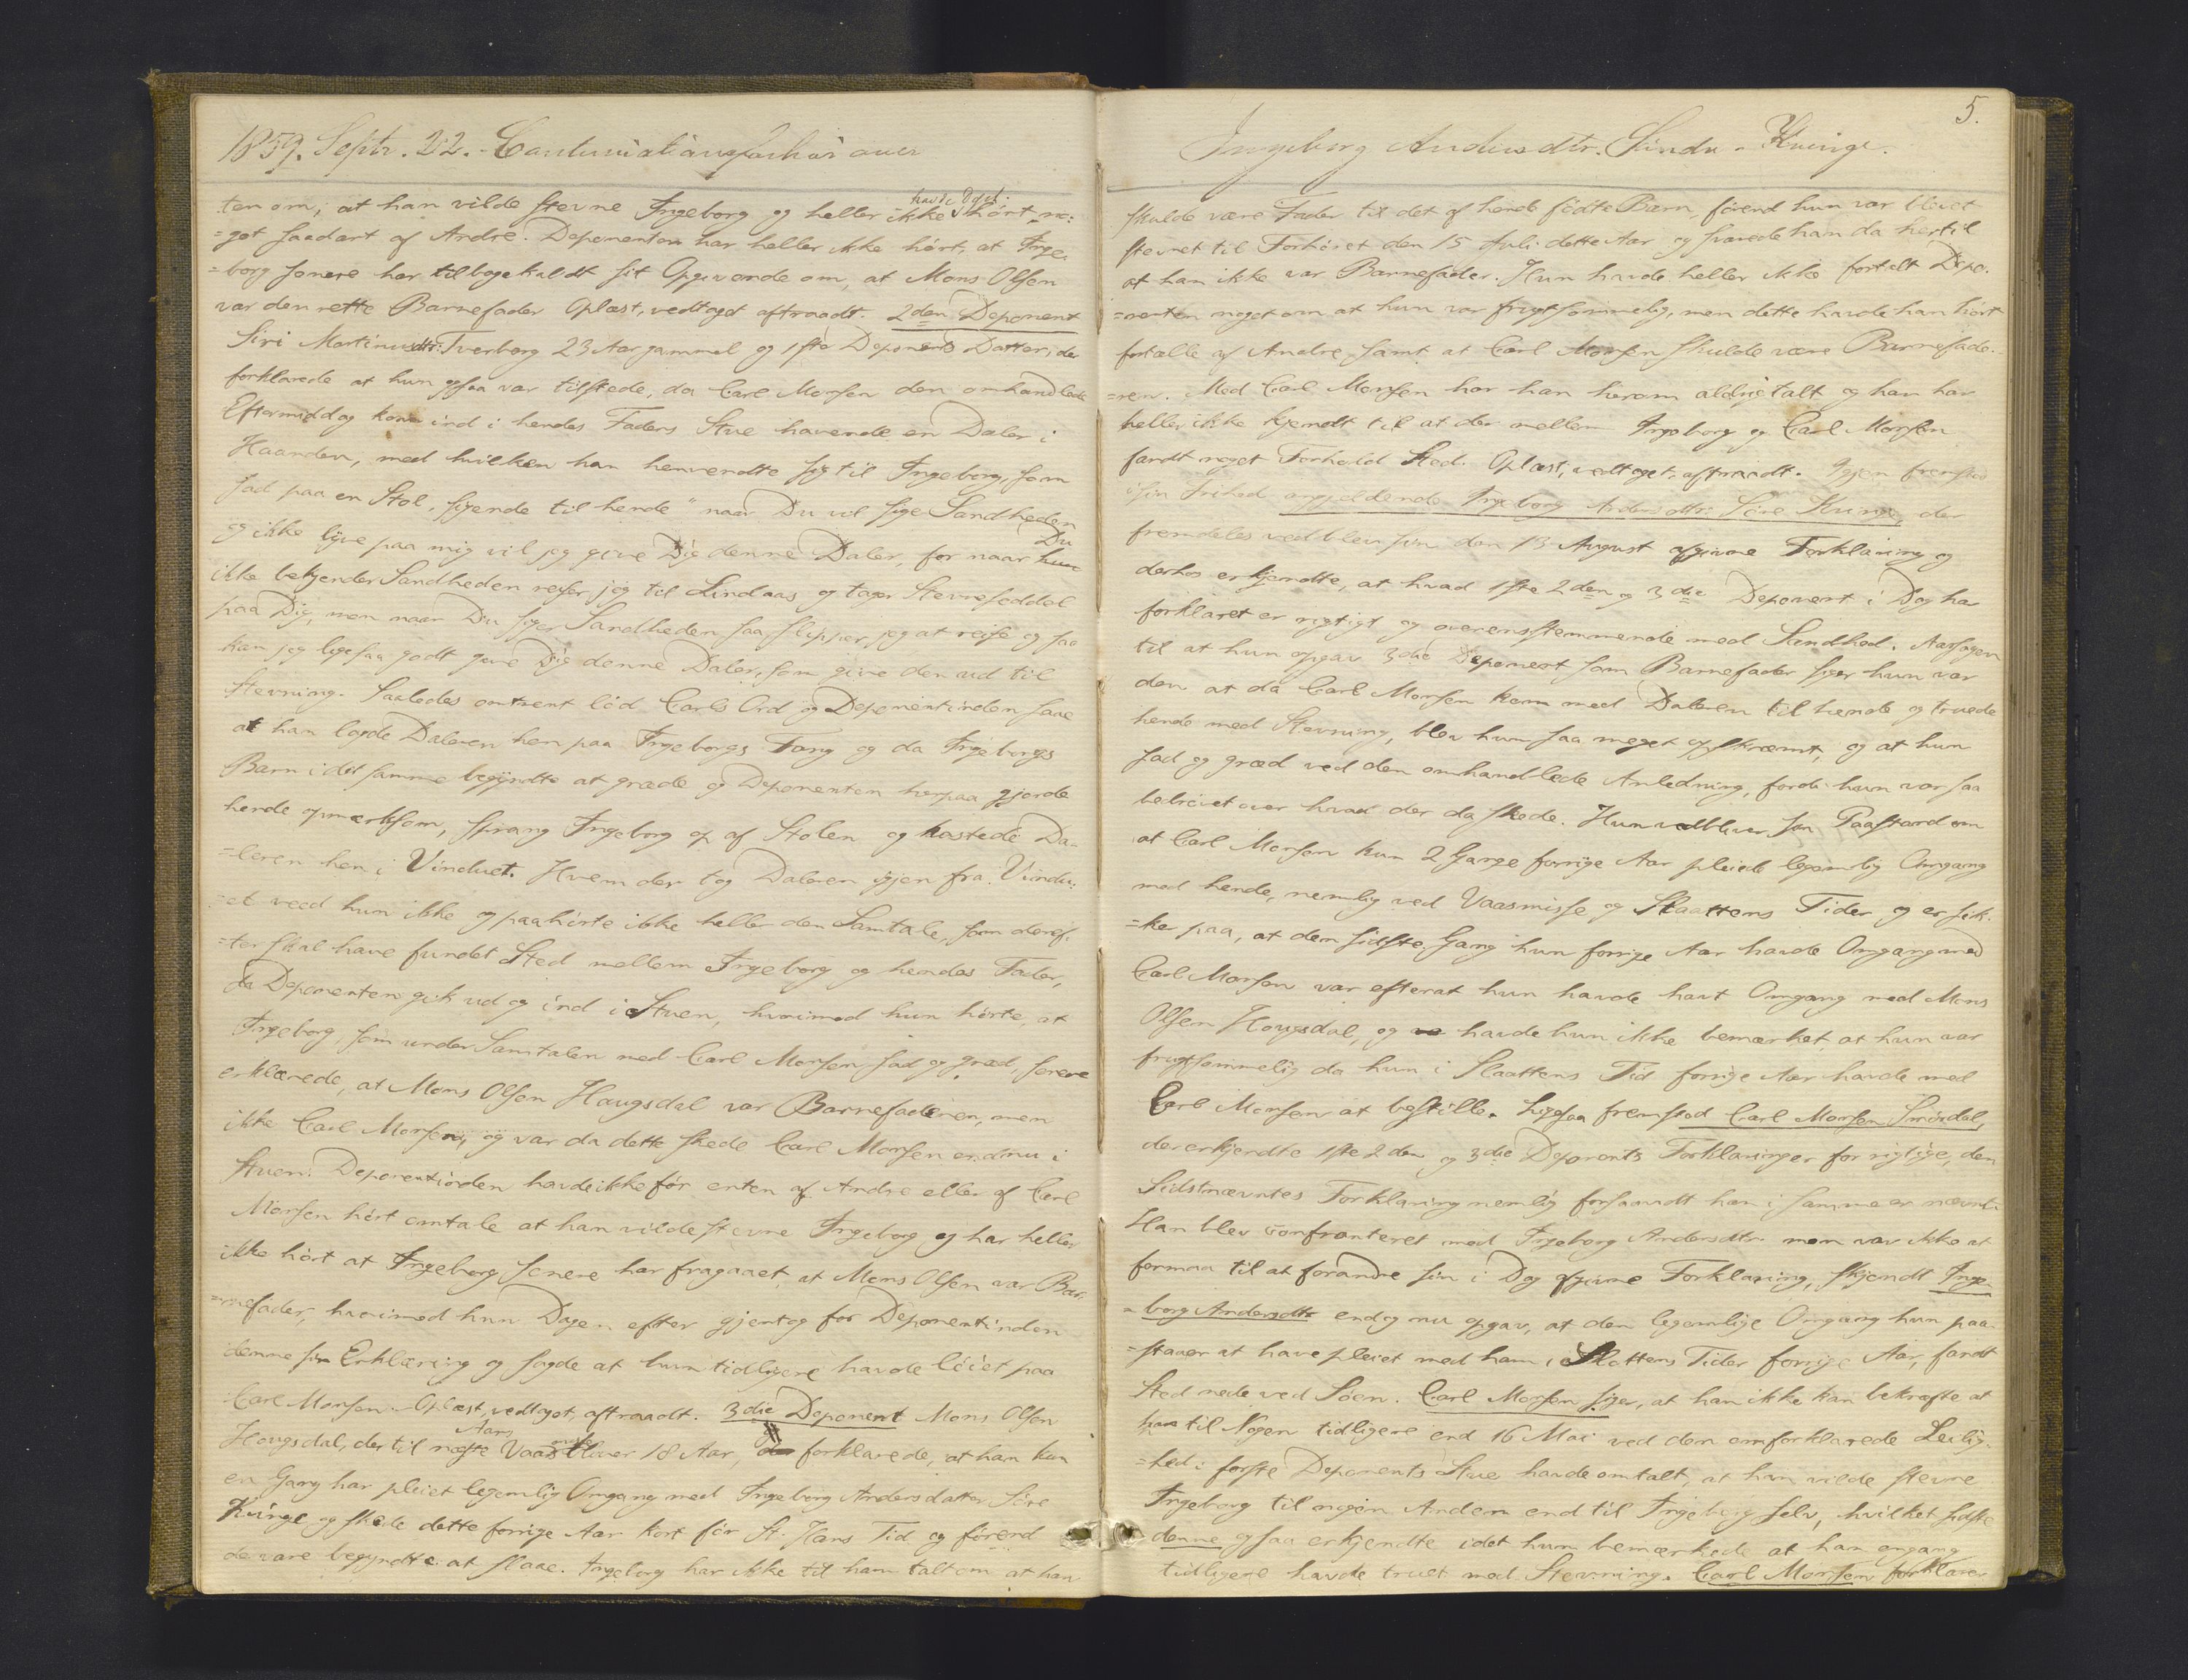 1859. Septr. 22. - Continuationsforhør over
ten om, at han vilde stevne Ingeborg og heller ikke havde Dept: hørt no-
=get saadant af Andre. Deponenten har heller ikke hørt, at Inge-
=borg senere har tilbagekaldt sit Opgivende om, at Mons Olsen
var den rette Barnefader. Oplæst, vedtaget aftraadt. 2den Deponent
Siri Martinusdtr: Tverberg 23 Aar gammel og 1ste Deponents Datter, der
forklarede at hun ogsaa var tilstede, da Carl Monsen den omhandlede
Eftermiddag kom ind i hendes Faders Stue havende en Daler i
Haanden, med hvilken han henvendte sig til Ingeborg, som
sad paa en Stol, sigende til hende "naar Du vil sige Sandheden
og ikke lyve paa mig vil jeg give Dig denne Daler, for naar Du
ikke bekjender Sandheden reiser jeg til Lindaas og tager Stevneseddel
paa Dig, men naar Du siger Sandheden saa slipper jeg at reise og saa
kan jeg ligesaa godt give Dig denne Daler, som give den ud til
Stevning. Saaledes omtrent lød Carls Ord og Deponentinden saae
at han lagde Daleren hen paa Ingeborgs Fang og da Ingeborgs
Barn i det samme begyndte at græde og Deponenten herpaa gjorde
hende opmærksom, sprang Ingeborg op af Stolen og kastede Da-
=leren hen i Vinduet. Hvem der tog Daleren igjen fra Vindu-
=et veed hun ikke og paahørte ikke heller den Samtale, som deref-
=ter skal have fundet Sted mellem Ingeborg og hendes Fader,
da Deponenten gik ud og ind i Stuen, hvorimod hun hørte, at
Ingeborg, som under Samtalen med Carl Monsen sad og græd, senere
erklærede, at Mons Olsen Haugsdal var Barnefaderen, men
ikke Carl Monsen, og var da dette skede Carl Monsen endnu i
Stuen. Deponentinden havde ikke før enten af Andre eller af Carl
Monsen hørt omtale at han vilde stevne Ingeborg og har heller
ikke hørt at Ingeborg senere har fragaaet, at Mons Olsen var Bar-
=nefader, hvorimod hun Dagen efter gjentog for Deponentinden
denne sin Erklæring og sagde at hun tidligere havde løiet paa
Carl Monsen. - Oplæst, vedtaget, aftraadt. 3die Deponent Mons Olsen
Hougsdal, der til næste Aars Vaaronn bliver 18 Aar, forklarede, at han kun
en Gang har pleiet legemlig Omgang med Ingeborg Andersdatter Søre
Kvinge og skede dette forrige Aar kort før St. Hans Tid og førend
de vare begyndte at slaae. Ingeborg har ikke til ham talt om at han
5.
Ingeborg Andersdtr. Søndr. Kvinge.
skulde være Fader til det af hende fødte Barn, førend hun var blevet
stevnet til Forhøret den 15 Juli dette Aar og svarede han da hertil
at han ikke var Barnefader. Hun havde heller ikke fortalt Depo-
=nenten noget om at hun var frugtsommelig, men dette havde han hørt
fortælle af Andre, samt at Carl Monsen skulde være Barnefade-
=ren. Med Carl Monsen har han herom aldrig talt og han har
heller ikke kjendt til at der mellem Ingeborg og Carl Monsen
fandt noget Forhold Sted. Oplæst, vedtaget, aftraadt. Igjen fremstod
i sin Frihed angjældende Ingeborg Andersdtr: Søre Kvinge, der
fremdeles vedblev sin den 13 August afgivne Forklaring og
derhos erkjendte, at hvad 1ste 2den og 3die Deponent i Dag har
forklaret er rigtigt og overensstemmende med Sandhed. Aarsagen
til at hun opgav 3die Deponent som Barnefader siger hun var
den at da Carl Monsen kom med Daleren til hende og truede
hende med Stevning, blev hun saa meget opskræmt, og at hun
sad og græd ved den omhandlede Anledning, fordi hun var saa
bedrøvet over hvad der da skede. Hun vedbliver sin Paastand om
at Carl Monsen kun 2 Gange forrige Aar pleiede legemlig Omgang
med hende, nemlig ved Vaarsmisse og Slaattens Tider og er sik-
=ker paa, at den sidste Gang hun forrige Aar havde Omgang med
Carl Monsen var efterat hun havde havt Omgang med Mons
Olsen Hougsdal, og havde hun ikke bemærket at hun var
frugtsommelig da hun i Slaattens Tid forrige Aar havde med
Carl Monsen at bestille. Ligesaa fremstod Carl Monsen Smørdal,
der erkjendte 1ste 2den og 3die Deponents Forklaringer for rigtige, den
Sidstnævntes Forklaring nemlig forsaavidt han i samme er nævnt.
Han blev confronteret med Ingeborg Andersdtr. men var ikke at
formaa til at forandre sin i Dag afgivne Forklaring, skjøndt Inge-
=borg Andersdtr endog nu opgav, at den legemlige Omgang hun paa-
=staaer at have pleiet med ham i Slottens Tider forrige Aar, fandt
Sted nede ved Søen. Carl Monsen siger, at han ikke kan bekræfte at
han til Nogen tidligere end 16 Mai ved den omforklarede Leilig-
=hed i første Deponents Stue havde omtalt, at han vilde stevne
Ingeborg til nogen Anden end til Ingeborg selv, hvilket sidste
denne ogsaa erkjendte idet hun bemærkede at han engang
tidligere havde truet med Stevning. Carl Monsen forklarer